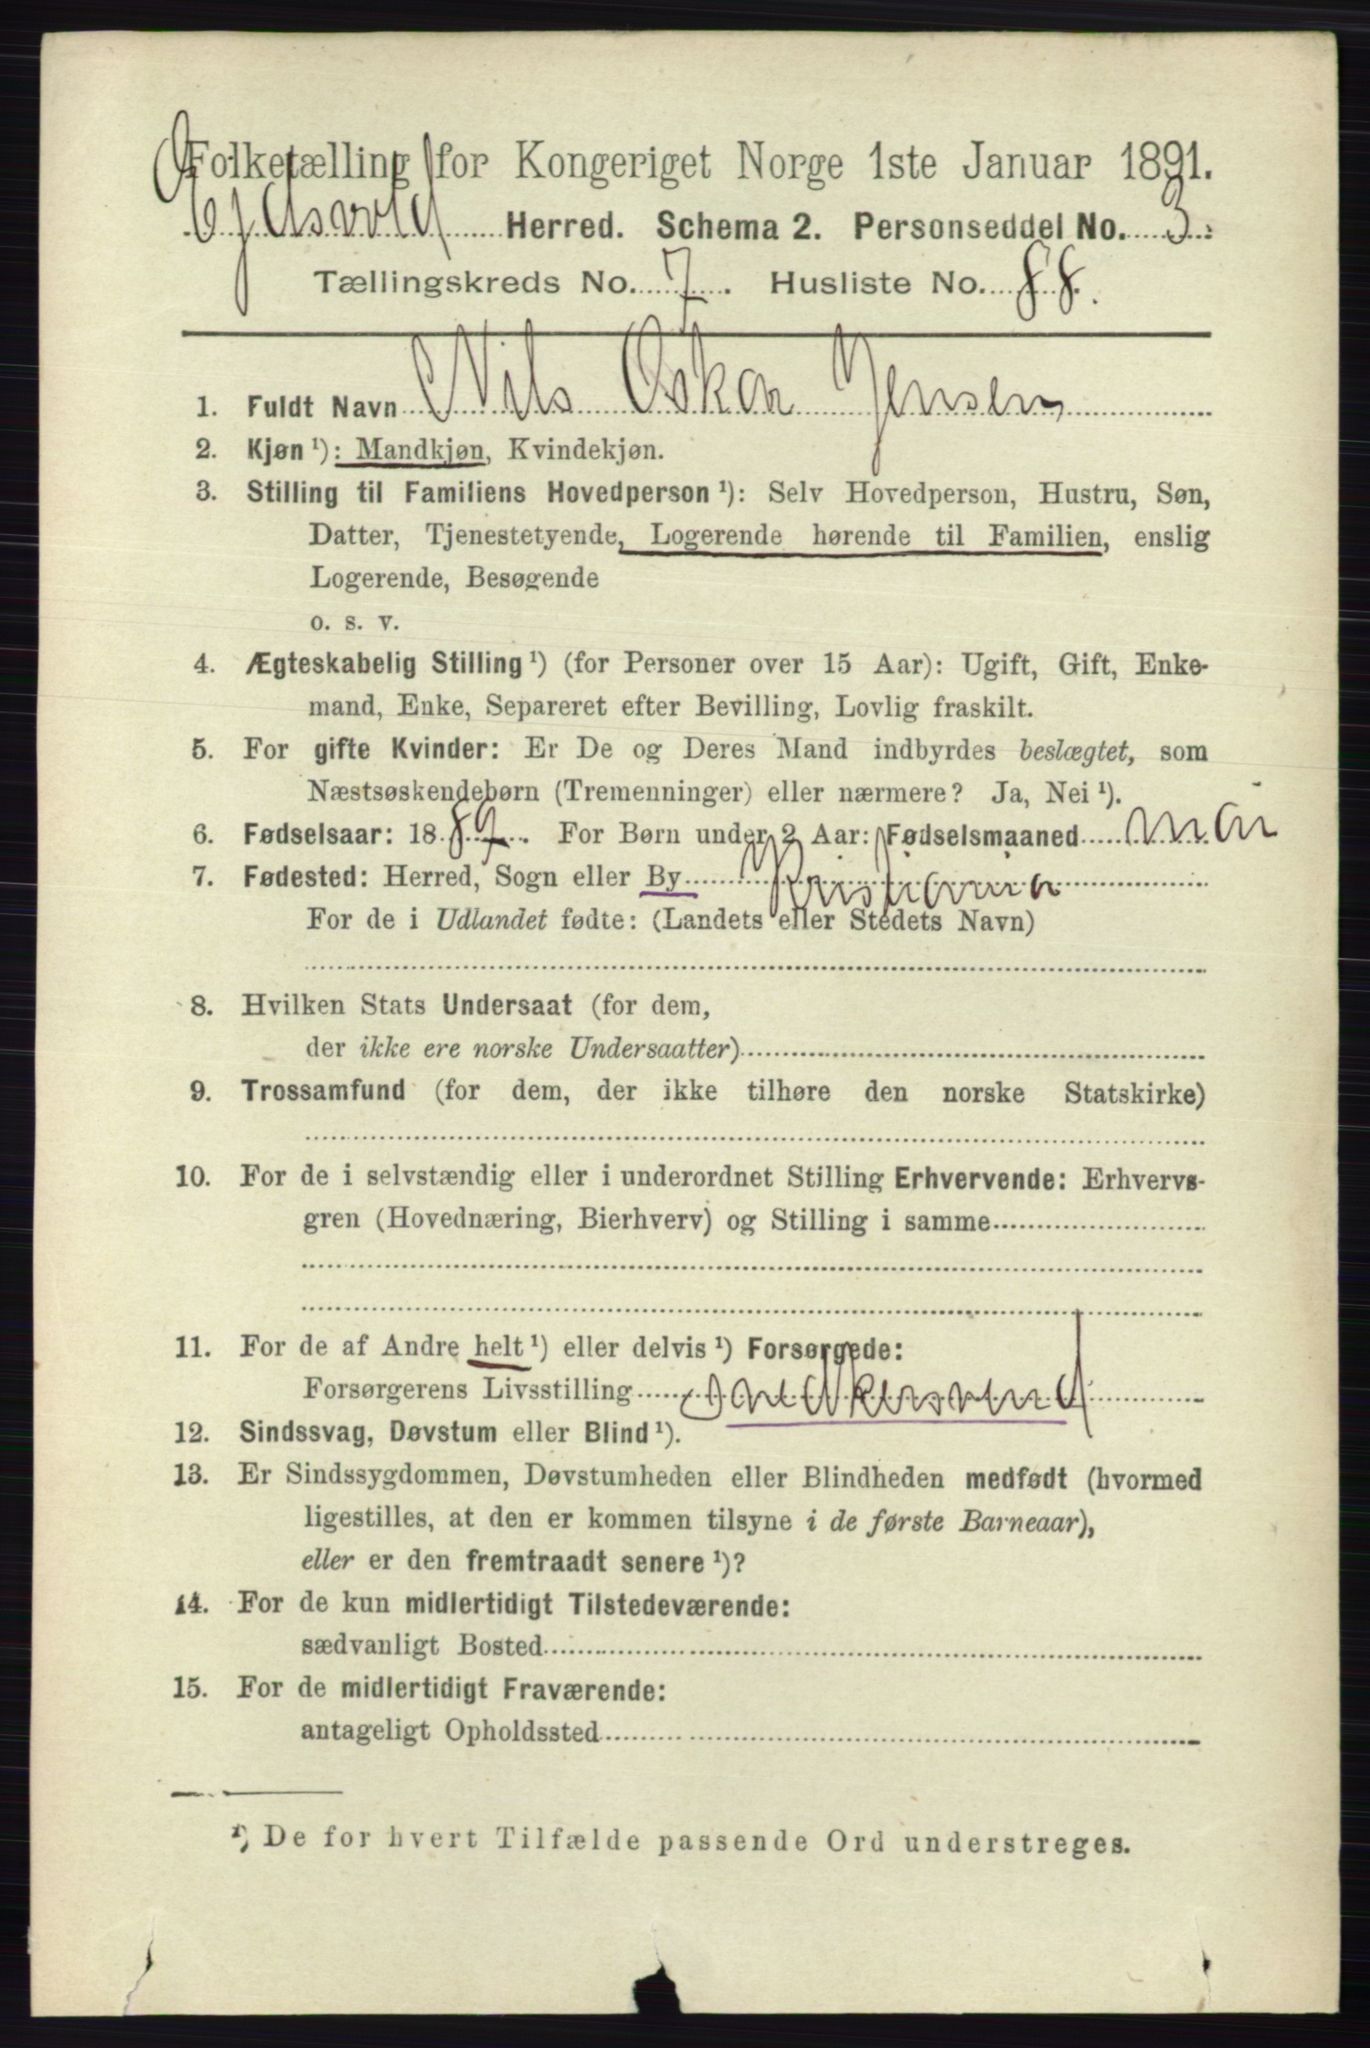 Folketælling for Kongeriget Norge 1ste Januar 1891.
Herred. Schema 2. Personseddel No. 3.
Tællingskreds No. 7. Husliste No. 88.
1. Fuldt Navn Nils Oskar Jensen
2. Kjøn ¹): Mandkjøn, Kvindekjøn.
3. Stilling til Familiens Hovedperson ¹): Selv Hovedperson, Hustru, Søn,
Datter, Tjenestetyende, Logerende hørende til Familien, enslig
Logerende, Besøgende
o. s. v.
4. Ægteskabelig Stilling ¹) (for Personer over 15 Aar): Ugift, Gift, Enke-
mand, Enke, Separeret efter Bevilling, Lovlig fraskilt.
5. For gifte Kvinder: Er De og Deres Mand indbyrdes beslægtet, som
Næstsøskendebørn (Tremenninger) eller nærmere? Ja, Nei ¹).
6. Fødselsaar: 1889. For Børn under 2 Aar: Fødselsmaaned Mai
7. Fødested: Herred, Sogn eller By Kristiania
For de i Udlandet fødte: (Landets eller Stedets Navn)
8. Hvilken Stats Undersaat (for dem,
der ikke ere norske Undersaatter)
9. Trossamfund (for dem, der ikke tilhøre den norske Statskirke)
10. For de i selvstændig eller i underordnet Stilling Erhvervende: Erhvervs-
gren (Hovednæring, Bierhverv) og Stilling i samme
11. For de af Andre helt ¹) eller delvis ¹) Forsørgede:
Forsørgerens Livsstilling
12. Sindssvag, Døvstum eller Blind ¹).
13. Er Sindssygdommen, Døvstumheden eller Blindheden medfødt (hvormed
ligestilles, at den er kommen tilsyne i de første Barneaar),
eller er den fremtraadt senere ¹)?
14. For de kun midlertidigt Tilstedeværende:
sædvanligt Bosted
15. For de midlertidigt Fraværende:
antageligt Opholdssted
¹) De for hvert Tilfælde passende Ord understreges.